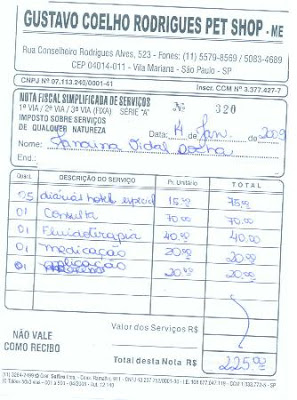 GUSTAVO COELHO RODRIGUES PET SHOP - ME
Rua Conselheiro Rodrigues Alves, 523 - Fones: (11) 5579-8569 / 5083-4689
CEP 04014-011 - Vila Mariana - São Paulo - SP
CNPJ Nº 07.113.240/0001-41 Inscr. CCM Nº 3.377.427-7
NOTA FISCAL SIMPLIFICADA DE SERVIÇOS
1ª VIA / 2ª VIA / 3ª VIA (FIXA) SÉRIE "A" Nº 320
IMPOSTO SOBRE SERVIÇOS
DE QUALQUER NATUREZA Data, 14 de Jan. de 2009
Nome: Vidal
End.:
Quant. DESCRIÇÃO DO SERVIÇO Pr. Unitário TOTAL
05 diárias hotel especial 15,00 75,00
01 Consulta 70,00 70,00
01 Fluidoterapia 40,00 40,00
01 medicação 20,00 20,00
01 20,00 20,00
Valor dos Serviços R$
NÃO VALE
COMO RECIBO
Total desta Nota R$ 225,00